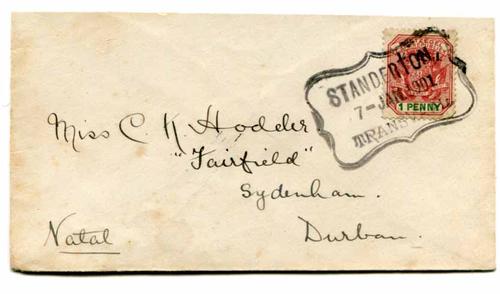 STANDERTON
7-JAN 1901
TRANS
1 PENNY
Miss C. K. Hodder.
"Fairfield"
Sydenham.
Natal
Durban.